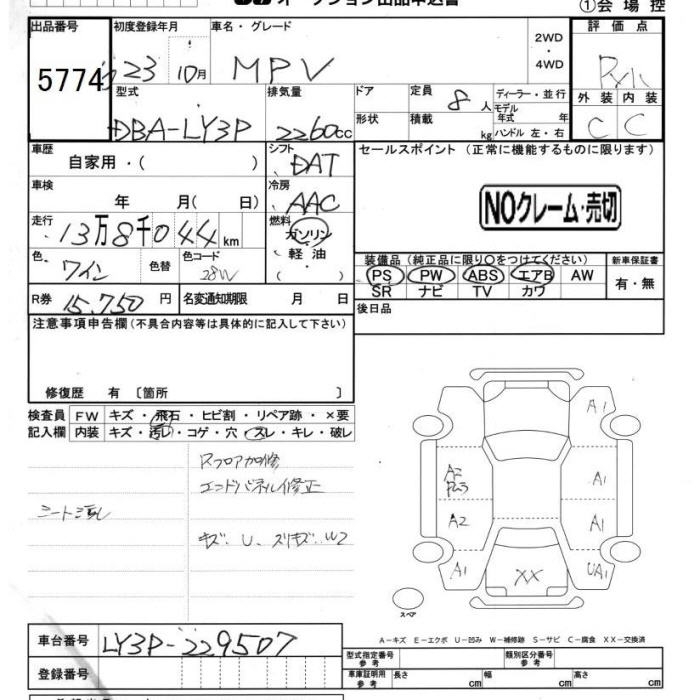 オークション出品申込書
①会場控
出品番号
初度登録年月
車名・グレード
2WD
・
4WD
評価点
5774
23 10月
MPV
外装 内装
C C
型式
排気量
ドア
定員
8人
ディーラー・並行
モデル年式 年
DBA-LY3P
2260cc
形状
積載
kg
ハンドル 左・右
車歴
シフト
セールスポイント (正常に機能するものに限ります)
自家用・( )
DAT
車検
冷房
年 月( 日)
AAC
NOクレーム・売切
走行
13万8千044km
燃料
ガソリン・軽油・( )
色
ワイン
色替
色コード
28W
装備品 (純正品に限り○をつけてください)
新車保証書
PS PW ABS エアB AW
有・無
SR ナビ TV カワ
R券
15,750円
名変通知期限
月 日
後日品
注意事項申告欄(不具合内容等は具体的に記入して下さい)
修復歴 有 〔箇所 〕
検査員
記入欄
FW キズ・飛石・ヒビ割・リペア跡・×要
内装 キズ・汚レ・コゲ・穴・スレ・キレ・破レ
Rフロア加修
エンドパネル修正
キズ、U、スリキズ、W2
A1
A2
A1
A2
A1
A1
XX
UA1
スペア
A-キズ E-エクボ U-凹み W-補修跡 S-サビ C-腐食 XX-交換済
車台番号
LY3P-229507
型式指定番号
参考
類別区分番号
参考
登録番号
車庫証明用
参考
長さ cm
幅 cm
高さ cm